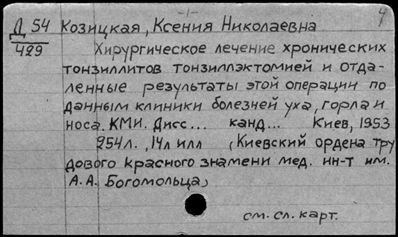 -1- 4
Д 54 Козицкая, Ксения Николаевна
429 Хирургическое лечение хронических
тонзиллитов тонзиллэктомией и отда-
ленные результаты этой операции по
данным клиники болезней уха, горла и
носа. КМИ. Дисс... канд... Киев, 1953
254л., 14л илл (Киевский ордена тру
дового Красного знамени мед. ин-т им.
А.А. Богомольца)
см. сл. карт.